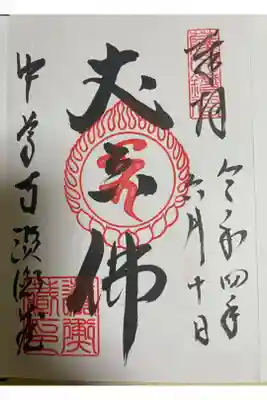 奉拝
令和四年
六月十日
丈六佛
中尊寺讃衡蔵